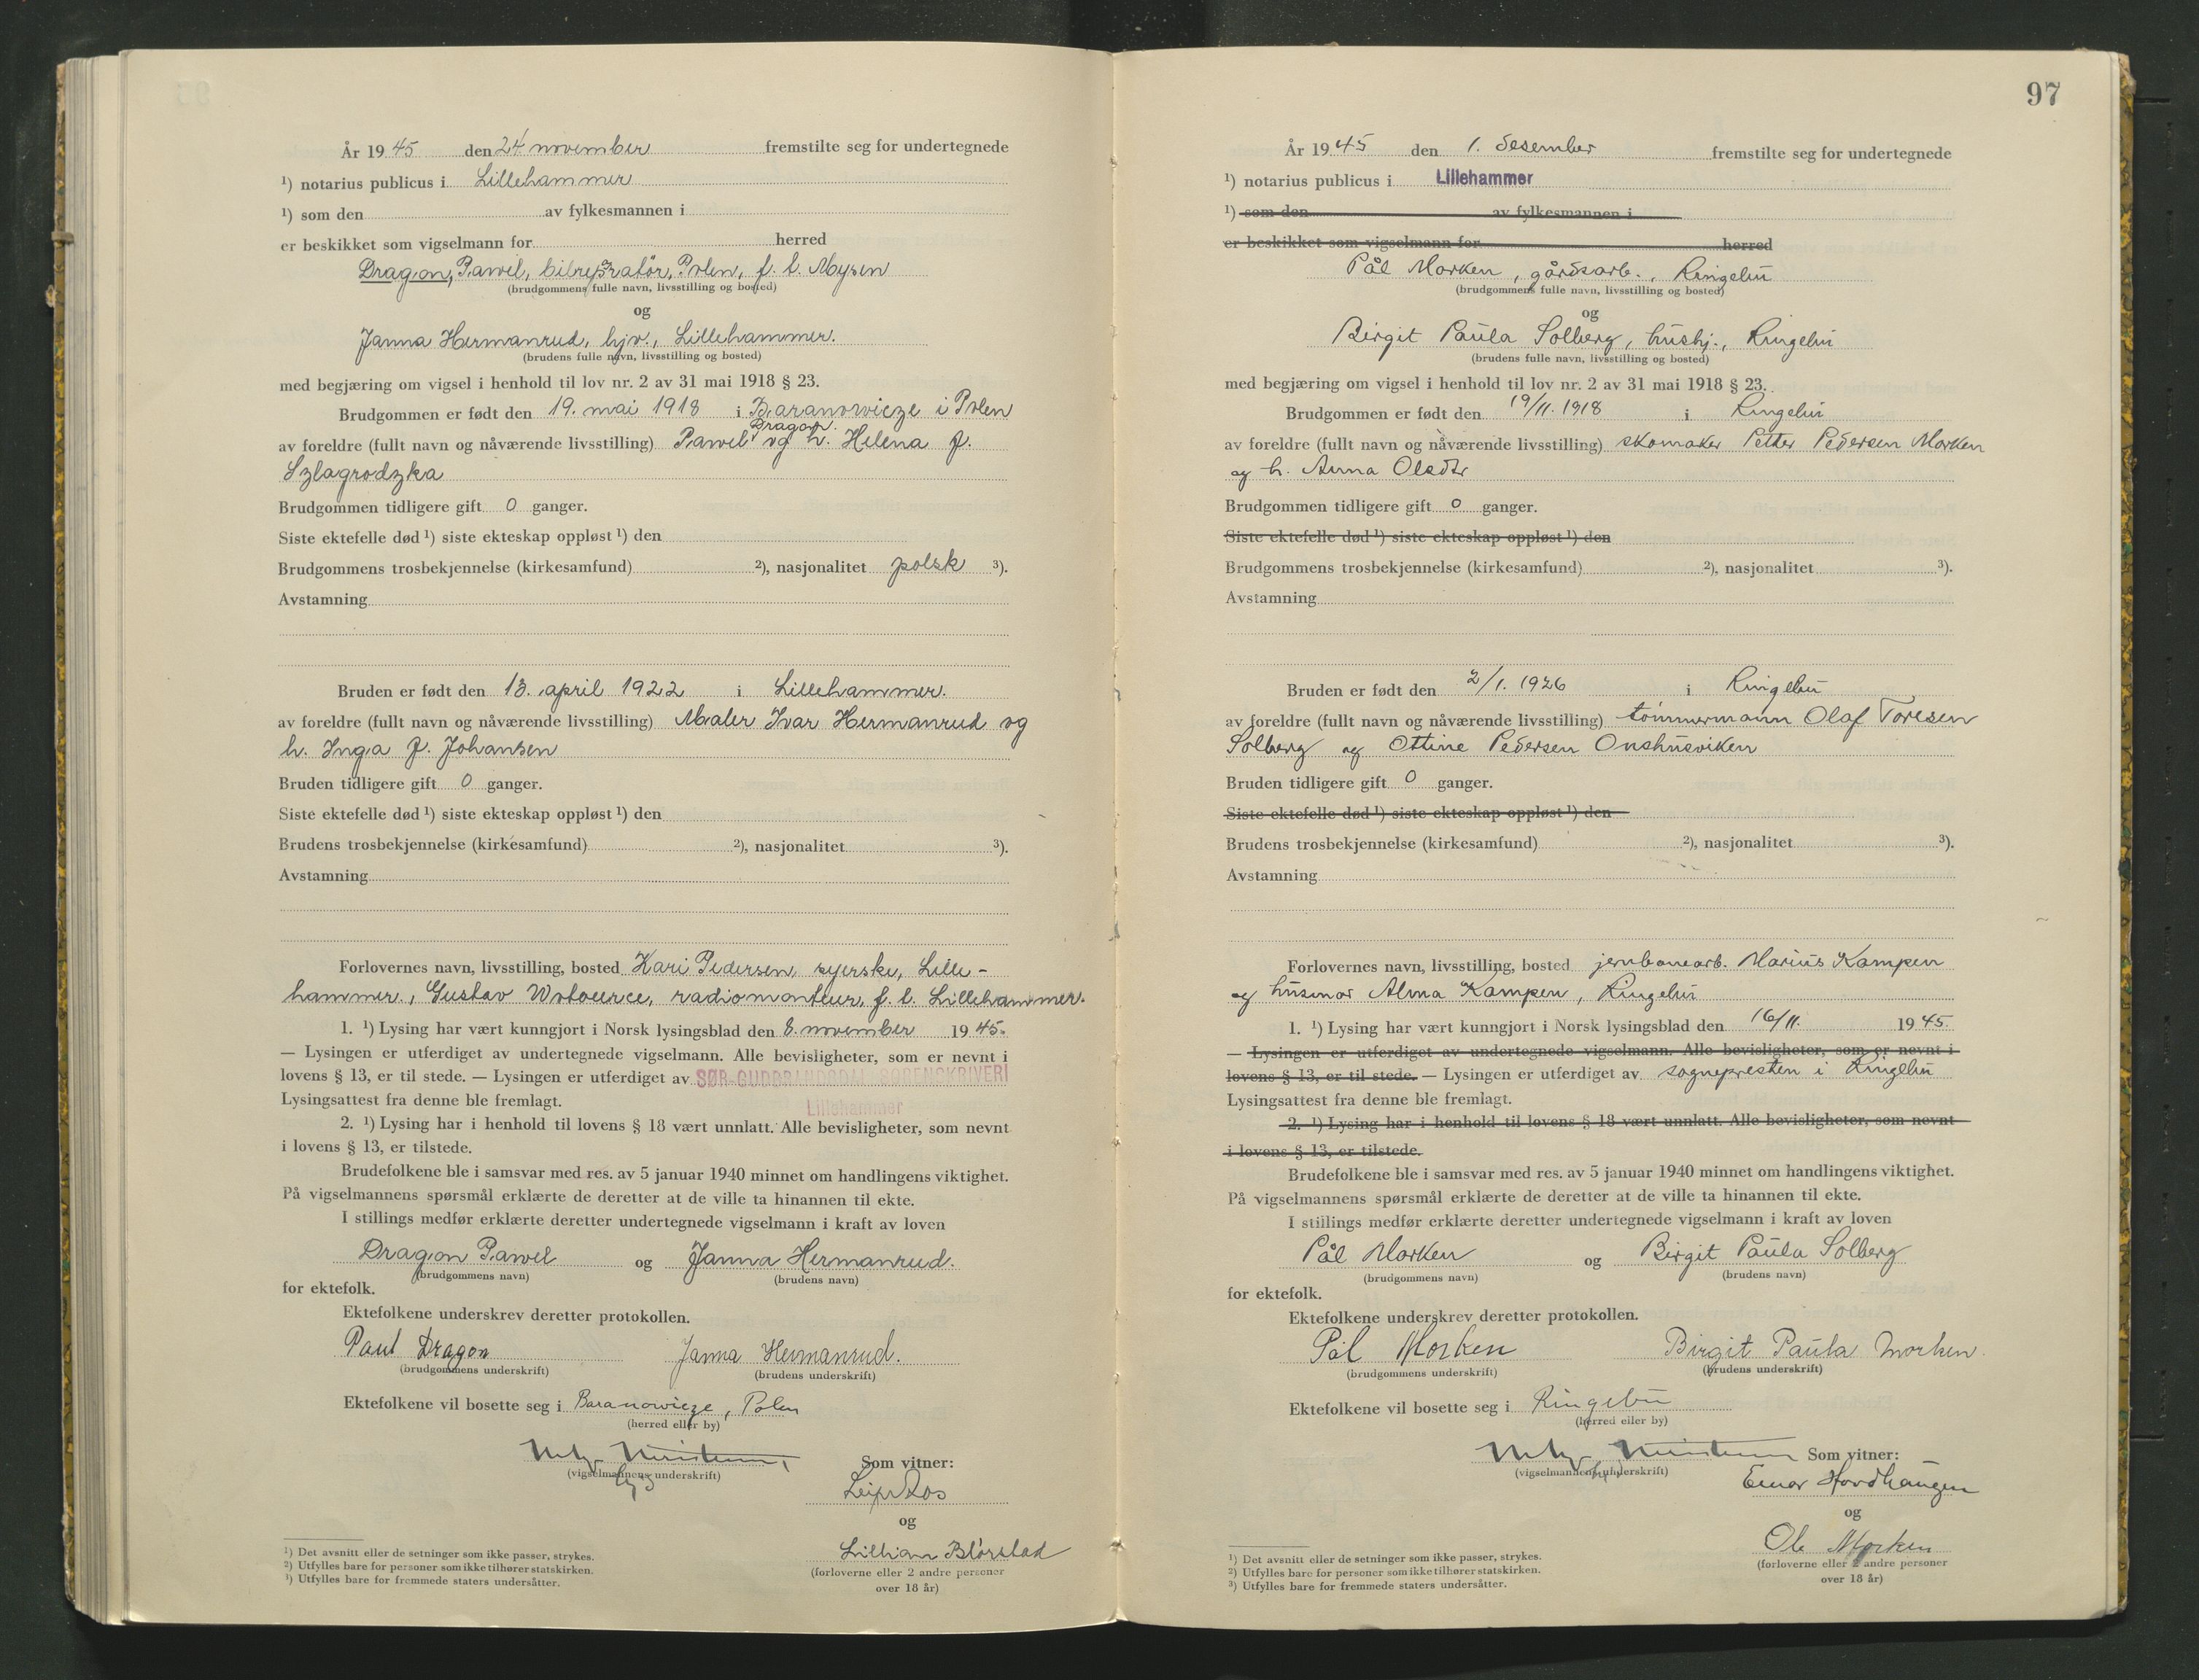 År 1945 den 24 november fremstilte seg for undertegnede
¹) notarius publicus i Lillehammer
¹) som den av fylkesmannen i
er beskikket som vigselmann for herred
Dragon, Pawel, bilreparatør, Polen, f. t. Mysen
(brudgommens fulle navn, livsstilling og bosted)
og
Janna Hermanrud, hjv., Lillehammer.
(brudens fulle navn, livsstilling og bosted)
med begjæring om vigsel i henhold til lov nr. 2 av 31 mai 1918 § 23.
Brudgommen er født den 19. mai 1918 i Baranowicze i Polen
av foreldre (fullt navn og nåværende livsstilling) Pawel Dragon og h. Helena f.
Szlagrodzka
Brudgommen tidligere gift 0 ganger.
Siste ektefelle død ¹) siste ekteskap oppløst ¹) den
Brudgommens trosbekjennelse (kirkesamfund) ²), nasjonalitet polsk ³).
Avstamning
Bruden er født den 13. april 1922 i Lillehammer.
av foreldre (fullt navn og nåværende livsstilling) Maler Ivar Hermanrud og
h. Inga f. Johansen
Bruden tidligere gift 0 ganger.
Siste ektefelle død ¹) siste ekteskap oppløst ¹) den
Brudens trosbekjennelse (kirkesamfund) ²), nasjonalitet ³).
Avstamning
Forlovernes navn, livsstilling, bosted Kari Pedersen, syerske, Lille-
hammer., Gustav radiomontør, f. t. Lillehammer.
1. ¹) Lysing har vært kunngjort i Norsk lysingsblad den 8. november 1945.
— Lysingen er utferdiget av undertegnede vigselmann. Alle bevisligheter, som er nevnt i
lovens § 13, er til stede. — Lysingen er utferdiget av SØR-GUDBRANDSDAL SORENSKRIVERI
Lillehammer
Lysingsattest fra denne ble fremlagt.
2. ¹) Lysing har i henhold til lovens § 18 vært unnlatt. Alle bevisligheter, som nevnt
i lovens § 13, er tilstede.
Brudefolkene ble i samsvar med res. av 5 januar 1940 minnet om handlingens viktighet.
På vigselmannens spørsmål erklærte de deretter at de ville ta hinannen til ekte.
I stillings medfør erklærte deretter undertegnede vigselmann i kraft av loven
Dragon Pawel og Janna Hermanrud.
(brudgommens navn) (brudens navn)
for ektefolk.
Ektefolkene underskrev deretter protokollen.
Paul Dragon Janna Hermanrud.
(brudgommens underskrift) (brudens underskrift)
Ektefolkene vil bosette seg i Baranowicze, Polen
(herred eller by)
(vigselmannens underskrift) Som vitner:
og
Lillian Blørstad
(forloverne eller 2 andre personer
over 18 år)
¹) Det avsnitt eller de setninger som ikke passer, strykes.
²) Utfylles bare for personer som ikke tilhører statskirken.
³) Utfylles bare for fremmede staters undersåtter.
97
År 1945 den 1. desember fremstilte seg for undertegnede
¹) notarius publicus i Lillehammer
¹) som den av fylkesmannen i
er beskikket som vigselmann for herred
Pål Morken, gårdsarb., Ringebu
(brudgommens fulle navn, livsstilling og bosted)
og
Birgit Paula Solberg, hushj., Ringebu
(brudens fulle navn, livsstilling og bosted)
med begjæring om vigsel i henhold til lov nr. 2 av 31 mai 1918 § 23.
Brudgommen er født den 19/11. 1918 i Ringebu
av foreldre (fullt navn og nåværende livsstilling) skomaker Petter Pedersen Morken
og h. Anna Olsdtr
Brudgommen tidligere gift 0 ganger.
Siste ektefelle død ¹) siste ekteskap oppløst ¹) den
Brudgommens trosbekjennelse (kirkesamfund) ²), nasjonalitet ³).
Avstamning
Bruden er født den 2/1. 1926 i Ringebu
av foreldre (fullt navn og nåværende livsstilling) tømmermann Olaf Toresen
Solberg og Ottine Pedersen Onshusviken
Bruden tidligere gift 0 ganger.
Siste ektefelle død ¹) siste ekteskap oppløst ¹) den
Brudens trosbekjennelse (kirkesamfund) ²), nasjonalitet ³).
Avstamning
Forlovernes navn, livsstilling, bosted jernbanearb. Marius Kampen
og husmor Alma Kampen, Ringebu
1. ¹) Lysing har vært kunngjort i Norsk lysingsblad den 16/11. 1945.
— Lysingen er utferdiget av undertegnede vigselmann. Alle bevisligheter, som er nevnt i
lovens § 13, er til stede. — Lysingen er utferdiget av sognepresten i Ringebu
Lysingsattest fra denne ble fremlagt.
2. ¹) Lysing har i henhold til lovens § 18 vært unnlatt. Alle bevisligheter, som nevnt
i lovens § 13, er tilstede.
Brudefolkene ble i samsvar med res. av 5 januar 1940 minnet om handlingens viktighet.
På vigselmannens spørsmål erklærte de deretter at de ville ta hinannen til ekte.
I stillings medfør erklærte deretter undertegnede vigselmann i kraft av loven
Pål Morken og Birgit Paula Solberg
(brudgommens navn) (brudens navn)
for ektefolk.
Ektefolkene underskrev deretter protokollen.
Pål Morken Birgit Paula Morken.
(brudgommens underskrift) (brudens underskrift)
Ektefolkene vil bosette seg i Ringebu
(herred eller by)
(vigselmannens underskrift) Som vitner:
Einar Hovdhaugen
og
Ole Morken
(forloverne eller 2 andre personer
over 18 år)
¹) Det avsnitt eller de setninger som ikke passer, strykes.
²) Utfylles bare for personer som ikke tilhører statskirken.
³) Utfylles bare for fremmede staters undersåtter.